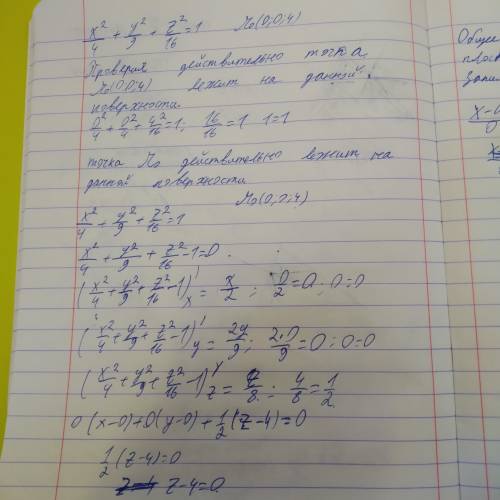 x²/4 + y²/9 + z²/16 = 1    M₀(0,0,4)
Проверия действительно точка
M₀(0,0,4) лежит на данной
поверхности
0²/4 + 0²/4 + 4²/16 = 1; 16/16 = 1  1=1
точка M₀ действительно лежит на
данной поверхности
M₀(0,0,4)
x²/4 + y²/9 + z²/16 = 1
x²/4 + y²/9 + z²/16 - 1 = 0
(x²/4 + y²/9 + z²/16 - 1)'x = x/2; 0/2 = 0; 0=0
(x²/4 + y²/9 + z²/16 - 1)'y = 2y/9; 2·0/9 = 0; 0=0
(x²/4 + y²/9 + z²/16 - 1)'z = z/8; 4/8 = 1/2
0(x-0)+0(y-0)+1/2(z-4)=0
1/2(z-4)=0
z-4=0
Общее
плоск
Запи